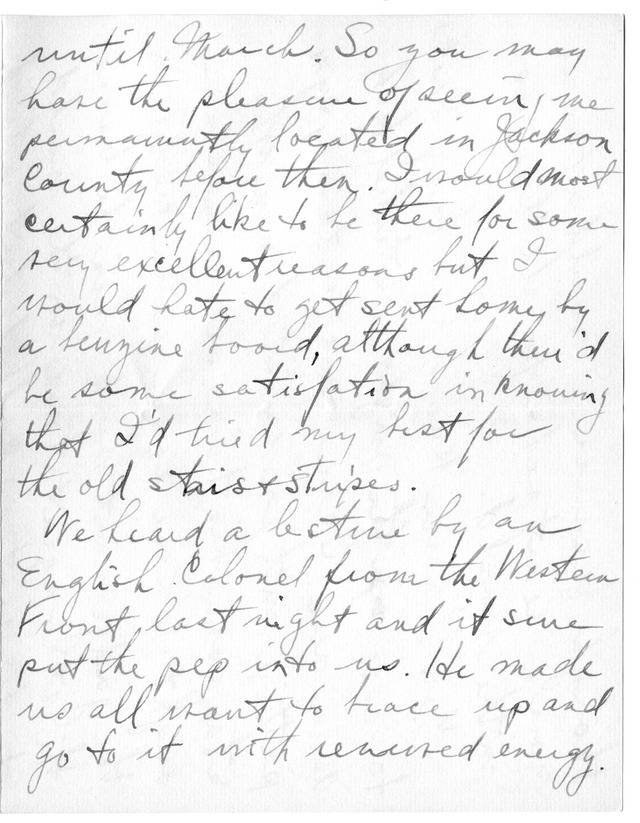 until March. So you may
have the pleasure of seeing me
permanently located in Jackson
County before then. I would most
certainly like to be there for some
very excellent reasons but I
would hate to get sent home by
a benzine board, although there'd
be some satisfation in knowing
that I'd tried my best for
the old stars + stripes.
We heard a lecture by an
English Colonel from the Western
Front last night and it sure
put the pep into us. He made
us all want to brace up and
go to it with renewed energy.